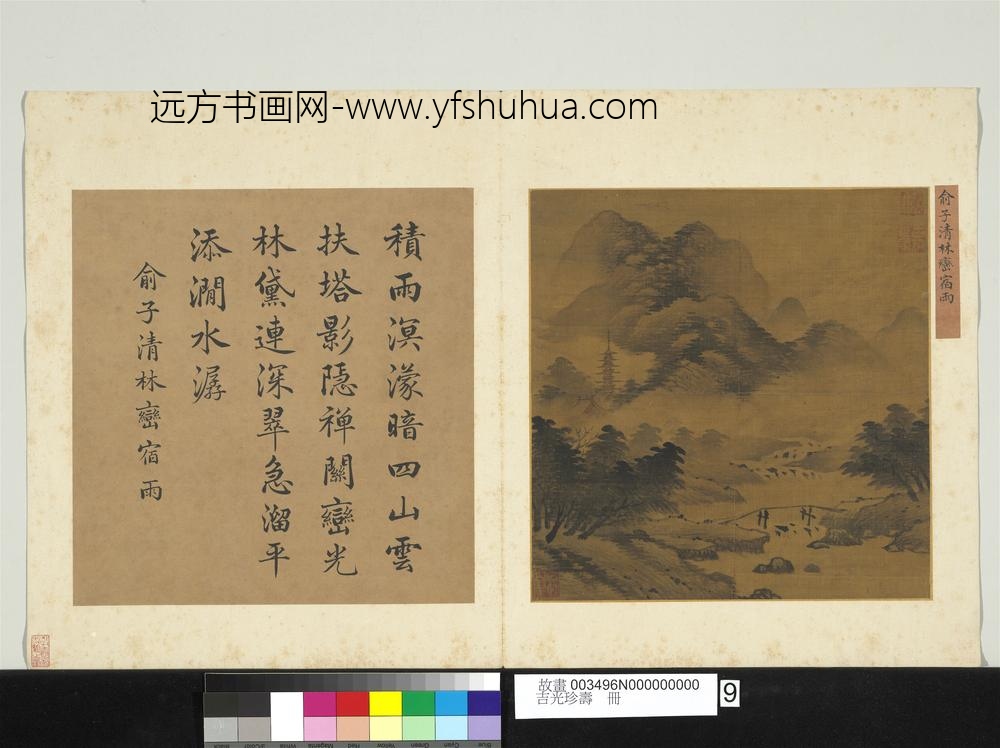 远方书画网-www.yfshuhua.com
俞子清林巒宿雨
積雨溟濛暗四山雲
扶塔影隱禅關巒光
林黛連深翠急溜平
添澗水潺
俞子清林巒宿雨
故畫 003496N000000000
吉光珍壽 冊
9